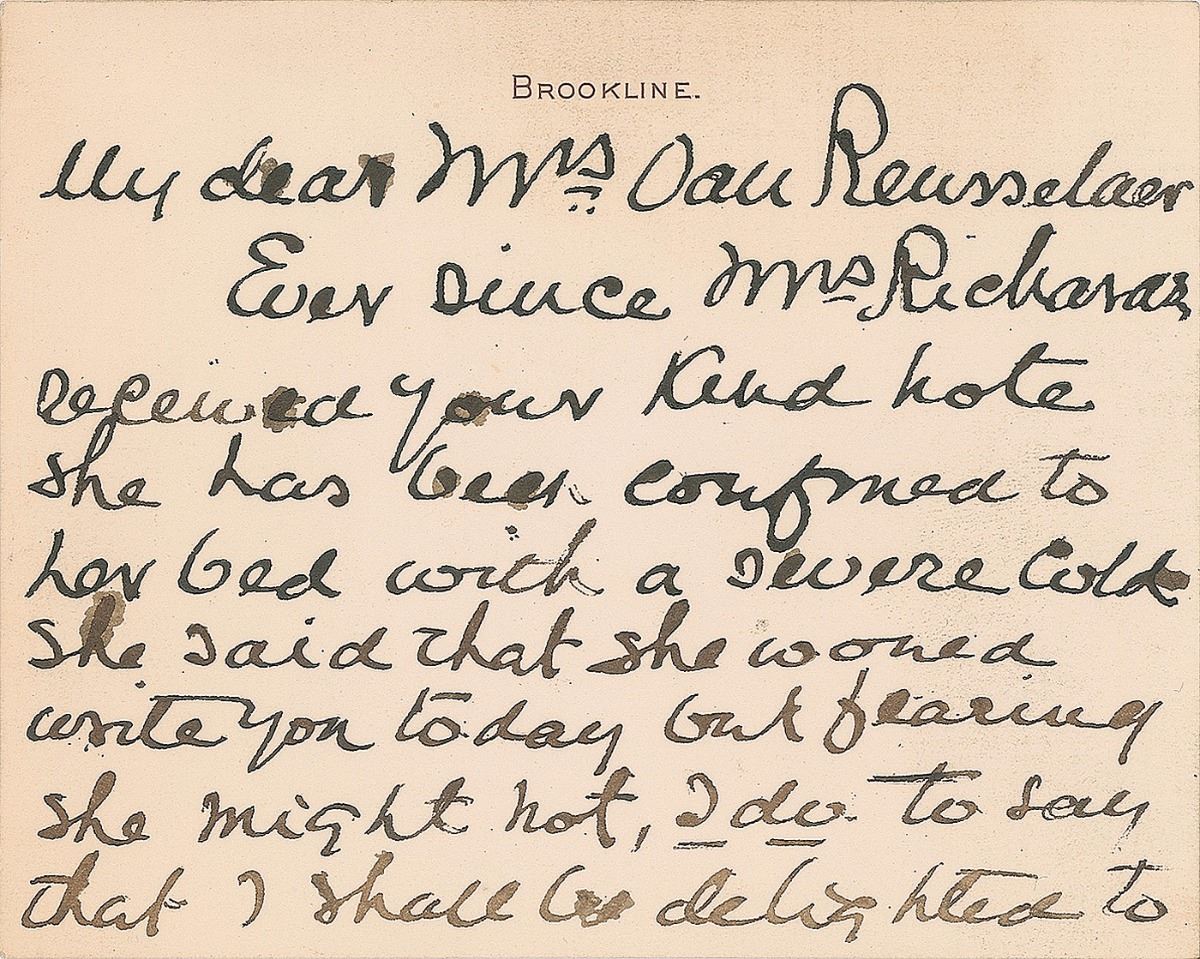 BROOKLINE.
My dear Mrs Van Rensselaer
Ever since Mrs Richardson
received your kind note
she has been confined to
her bed with a severe cold
She said that she would
write you today but fearing
she might not, I do to say
that I shall be delighted to